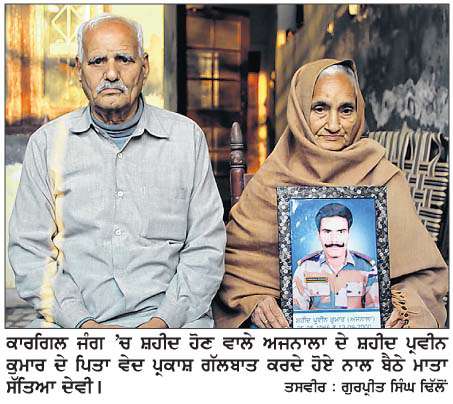 ਸ਼ਹੀਦ ਪ੍ਰਵੀਨ ਕੁਮਾਰ (ਅਜਨਾਲਾ)
ਕਾਰਗਿਲ ਜੰਗ ’ਚ ਸ਼ਹੀਦ ਹੋਣ ਵਾਲੇ ਅਜਨਾਲਾ ਦੇ ਸ਼ਹੀਦ ਪ੍ਰਵੀਨ
ਕੁਮਾਰ ਦੇ ਪਿਤਾ ਵੇਦ ਪ੍ਰਕਾਸ਼ ਗੱਲਬਾਤ ਕਰਦੇ ਹੋਏ ਨਾਲ ਬੈਠੇ ਮਾਤਾ
ਸੱਤਿਆ ਦੇਵੀ।
ਤਸਵੀਰ : ਗੁਰਪ੍ਰੀਤ ਸਿੰਘ ਢਿੱਲੋਂ